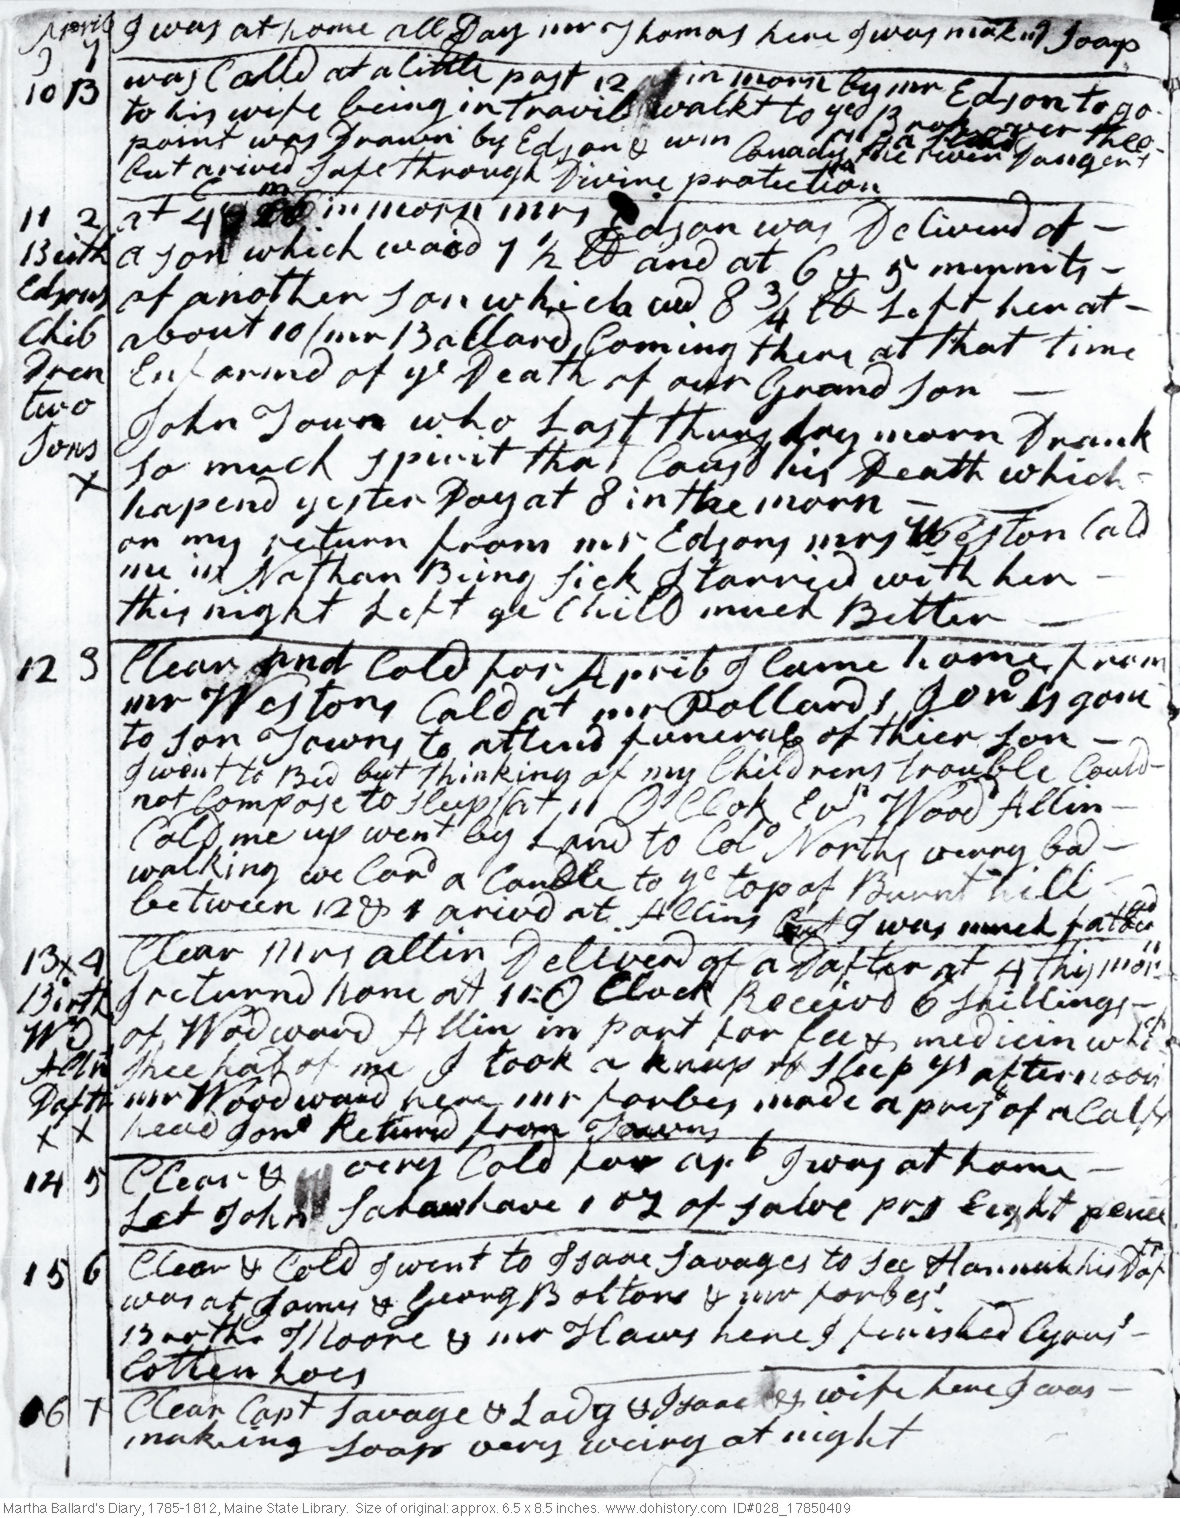 April
9 7 I was at home all Day mr Thomas here I was making Soap
10 B was Calld at a little past 12 in morn by mr Edson to go
to his wife being in Travil walkt to
point was Drawn by Edson & wm the river Dangers
but arived safe through Divine protection
11 2 at 4 in morn mrs Edson was Deliverd of –
Birth a son which waid 7 1/2 lb and at 6 & 5 minnits –
Edsons of another son which wd 8 3/4 lb Left her at –
Chil about 10 / mr Ballard Coming there at that time
Dren Enformd of ye Death of our Grand son —
two John Town who Last thursday morn Drank
Sons so much spirit that Causd his Death which –
x hapend yester Day at 8 in the morn –
on my return from mr Edsons mrs Weston Cald
me in Nathan Being sick I tarried with her –
this night Left ye Child much Better —
12 3 Clear and Cold for April I Came home from
mr Westons Cald at mr Pollards Jono is gone
to son Towns to attend funeral of thier son –
I went to Bed but thinking of my Childrens trouble Could
not Compose to sleep at 11 O Clok Evn Wood Allin –
Calld me up went by Land to Colo Norths verry bad –
walking we Card a Candle to ye top of Burnt hill –
between 12 & 1 arivd at Allins but I was much fatigd
13 x 4 Clear Mrs allin Deliverd of a Dafter at 4 this morn
Birth I returnd home at 11 O Clock Receivd 6 shillings –
Wd of Wodward Allin in part for fee & medicin which
Allin shee had of me I took a knap of sleep ys afternoon
Daftr mr Woodward here mr forbes made a prest of a Calfs
x x head Jono Returnd from Towns
14 5 Clear & very Cold for aprl I was at home –
Let John have 1 oz of salve prs Eight pence
15 6 Clear & Cold I went to Isaac Savages to see Hannah his Daftr
was at James & Georg Boltons & mr forbes'
Bartho Moore & mr Haws here I finished Cyrus' –
Cotten hoes
16 7 Clear Capt Savage & Lady & Isaac & wife here I was –
making soap very weiry at night
Martha Ballard's Diary, 1785-1812, Maine State Library. Size of original: approx. 6.5 x 8.5 inches. www.dohistory.com ID#028_17850409